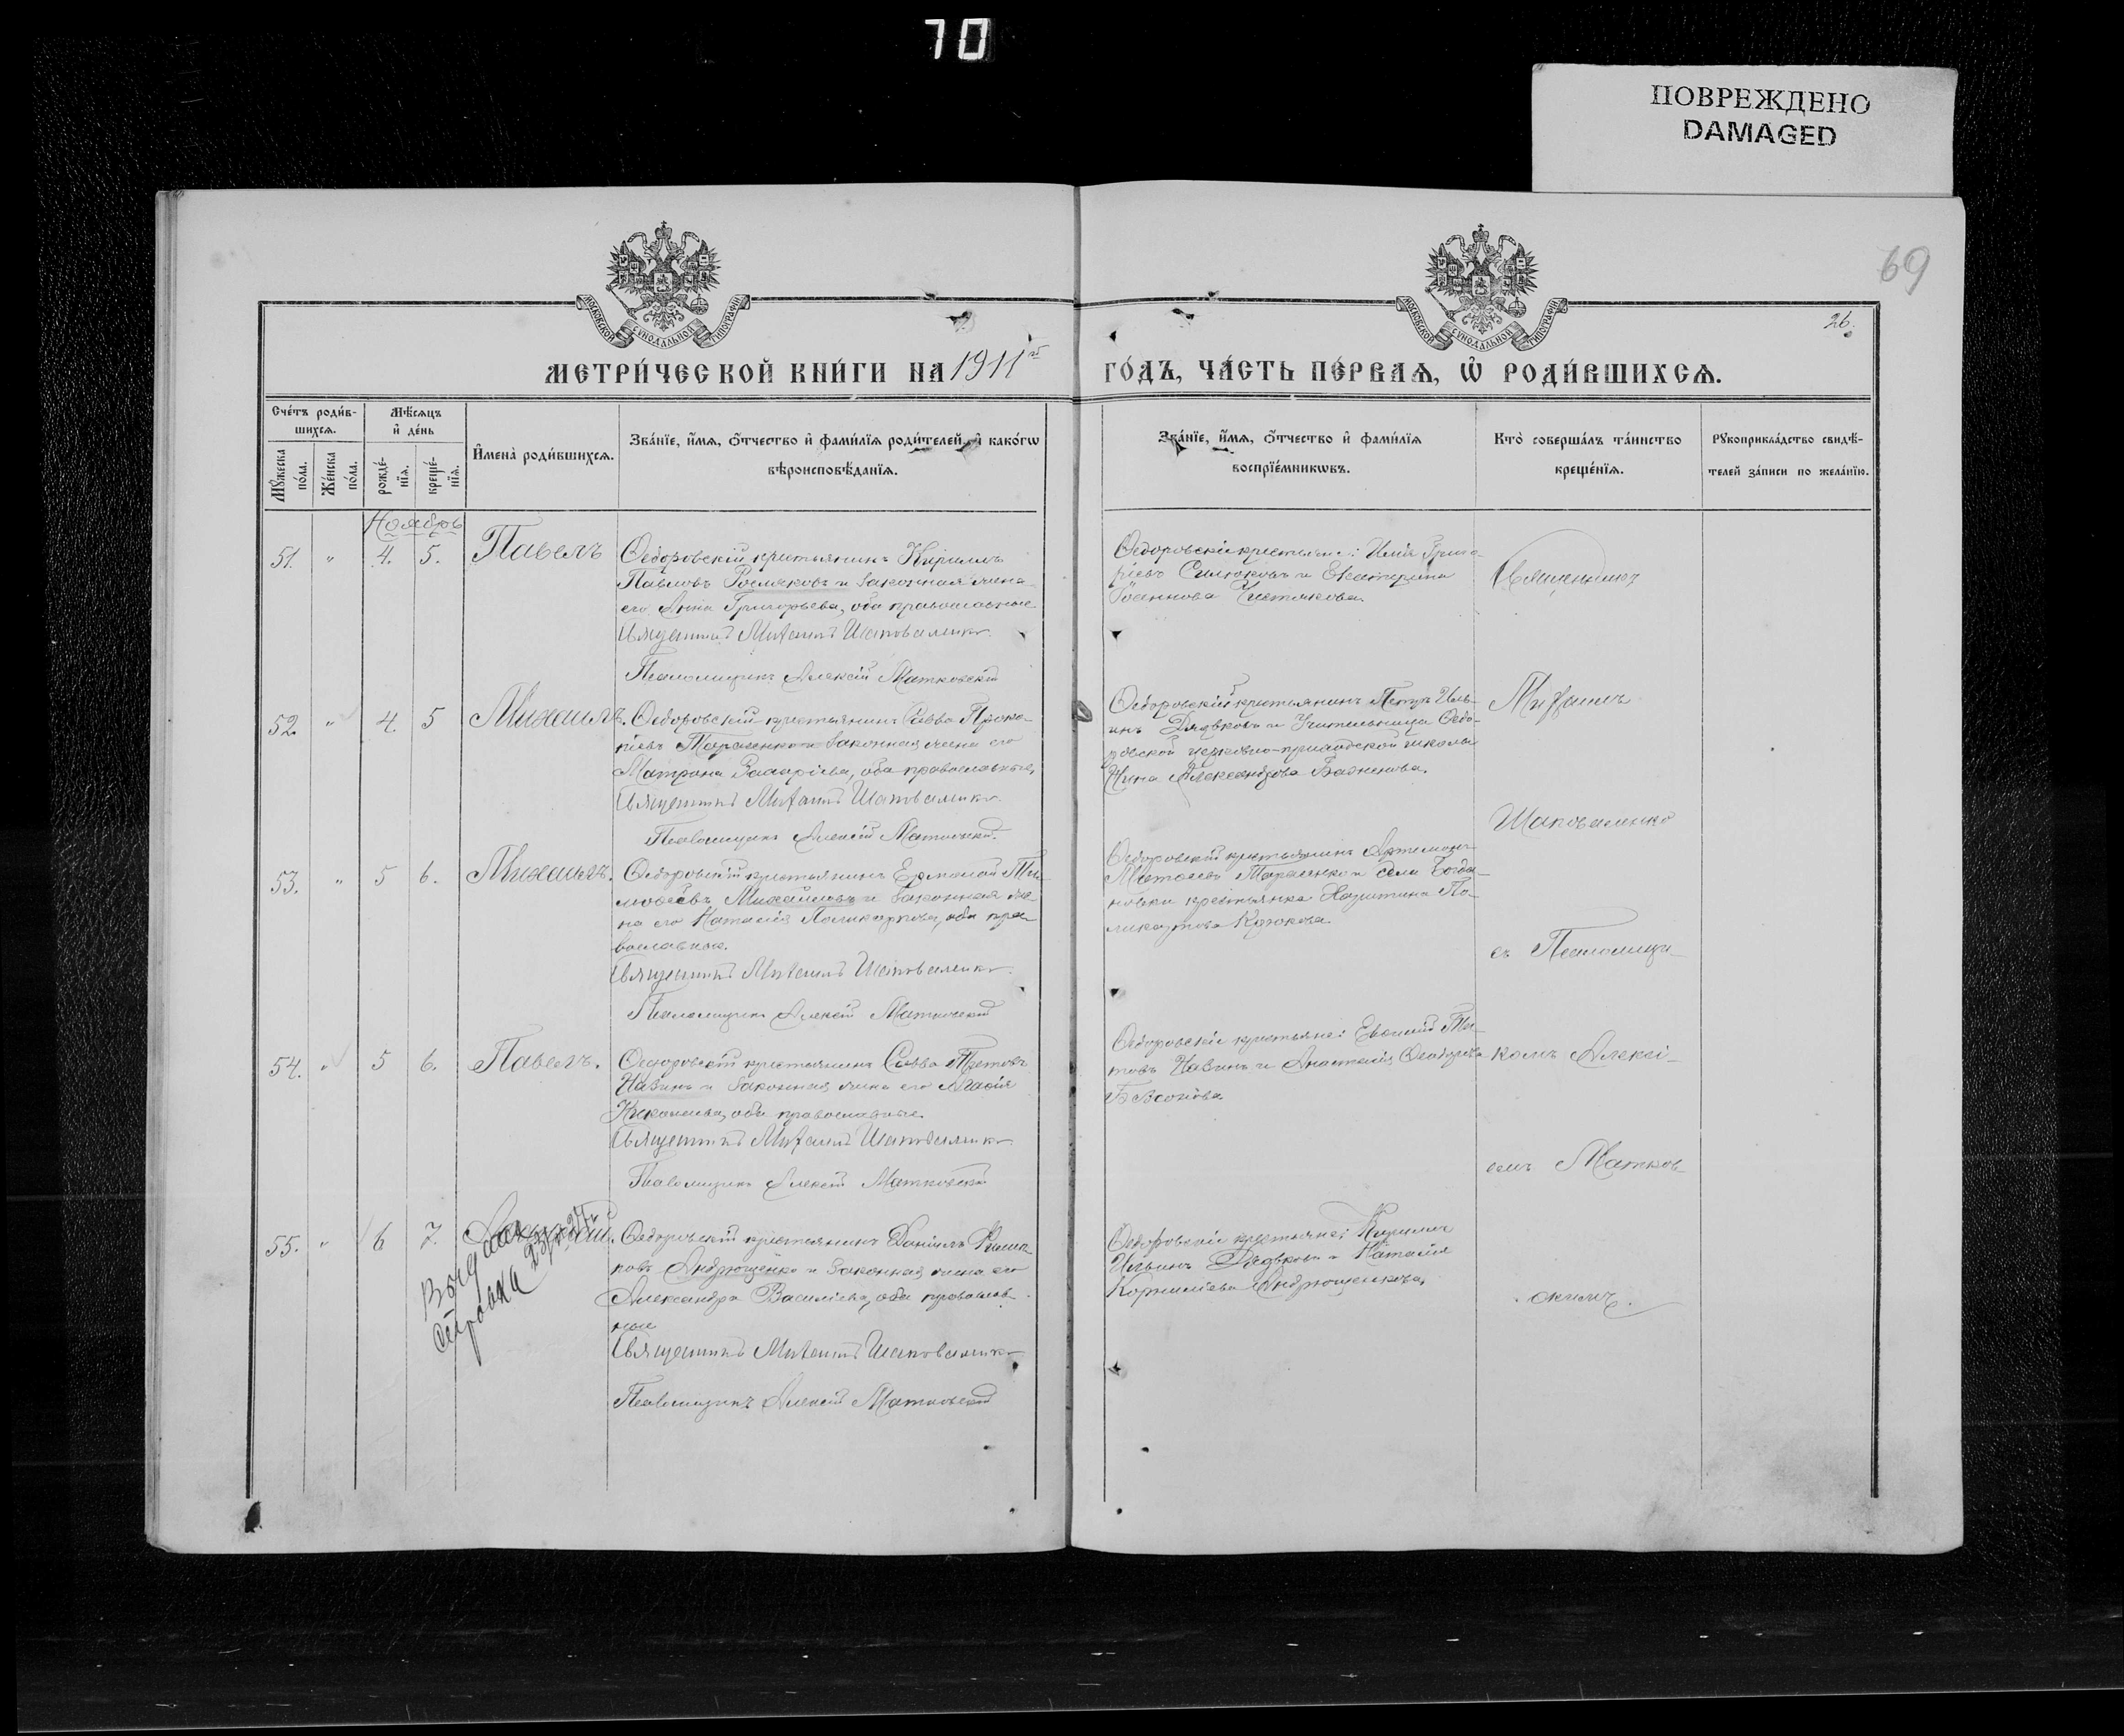 70
ПОВРЕЖДЕНО
DAMAGED
69
26.
МОСКОВСКОЙ СѴНОДАЛЬНОЙ ТИПОГРАФІИ
МОСКОВСКОЙ СѴНОДАЛЬНОЙ ТИПОГРАФІИ
МЕТРИ́ЧЕСКОЙ КНИ́ГИ НА 1911 ГО́ДЪ, ЧА́СТЬ ПЕ́РВАѦ, Ѡ҆ РОДИ́ВШИХСѦ.
Сче́тъ роди́в-
шихсѧ.
Мꙋ́жеска
по́ла.
Же́нска
по́ла.
Мѣ́сѧцъ
и҆ де́нь
рожде́-
нїѧ.
креще́-
нїѧ.
И҆мена̀ роди́вшихсѧ.
Зва́нїе, и҆́мѧ, ѻ҆́тчество и҆ фами́лїѧ роди́телей, и҆ како́гѡ
вѣроисповѣ́данїѧ.
Зва́нїе, и҆́мѧ, ѻ҆́тчество и҆ фами́лїѧ
воспрїе́мникѡвъ.
Кто̀ соверша́лъ та́инство
креще́нїѧ.
Рꙋкоприкла́дство свидѣ́-
телей за́писи по жела́нїю.
Ноябрь
51. " 4. 5. Павелъ
Ѳедоровскій крестьянинъ Кириллъ
Павловъ и законная жена
его Анна Григорьева, оба православные
Священникъ Михаилъ Шаповаленко
Псаломщикъ Алексій Матковскій
Ѳедоровскіе крестьяне: Илія Григо-
ріевъ и Екатерина
Іоаннова
Священникъ
52. " 4. 5 Михаилъ.
Ѳедоровскій крестьянинъ Савва Проко-
піевъ Тарасенко и законная жена его
Матрона Захаріева, оба православные,
Священникъ Михаилъ Шаповаленко
Псаломщикъ Алексій Матковскій.
Ѳедоровскій крестьянинъ Петръ Иль-
инъ Дядьковъ и Учительница Ѳедо-
ровской церковно-приходской школы
Нина Александрова
Михаилъ
Шаповаленко
53. " 5 6. Михаилъ.
Ѳедоровскій крестьянинъ Ермолай Ти-
моѳеевъ Михайловъ и законная же-
на его Наталія Поликарпова, оба пра-
вославные.
Священникъ Михаилъ Шаповаленко
Псаломщикъ Алексій Матковскій
Ѳедоровскій крестьянинъ Артемонъ
Тарасенко и села Богда-
новки крестьянка Харитина По-
ликарпова
съ Псаломщи-
54. " 5 6. Павелъ.
Ѳедоровскій крестьянинъ Савва Титовъ
и законная жена его Агаѳія
оба православные.
Священникъ Михаилъ Шаповаленко
Псаломщикъ Алексій Матковскій
Ѳедоровскіе крестьяне: Ти-
товъ и Анастасія Ѳеодорова
комъ Алексі-
емъ Матков-
55. " 6 7.
Выдана
справка
Ѳедоровскій крестьянинъ Даніилъ Филип-
повъ Андрющенко и законная жена его
Александра Василіева, оба православ-
ные
Священникъ Михаилъ Шаповаленко
Псаломщикъ Алексій Матковскій
Ѳедоровскіе крестьяне: Кириллъ
Ильинъ Дядьковъ и Наталія
Корниліева Андрющенкова.
скимъ.